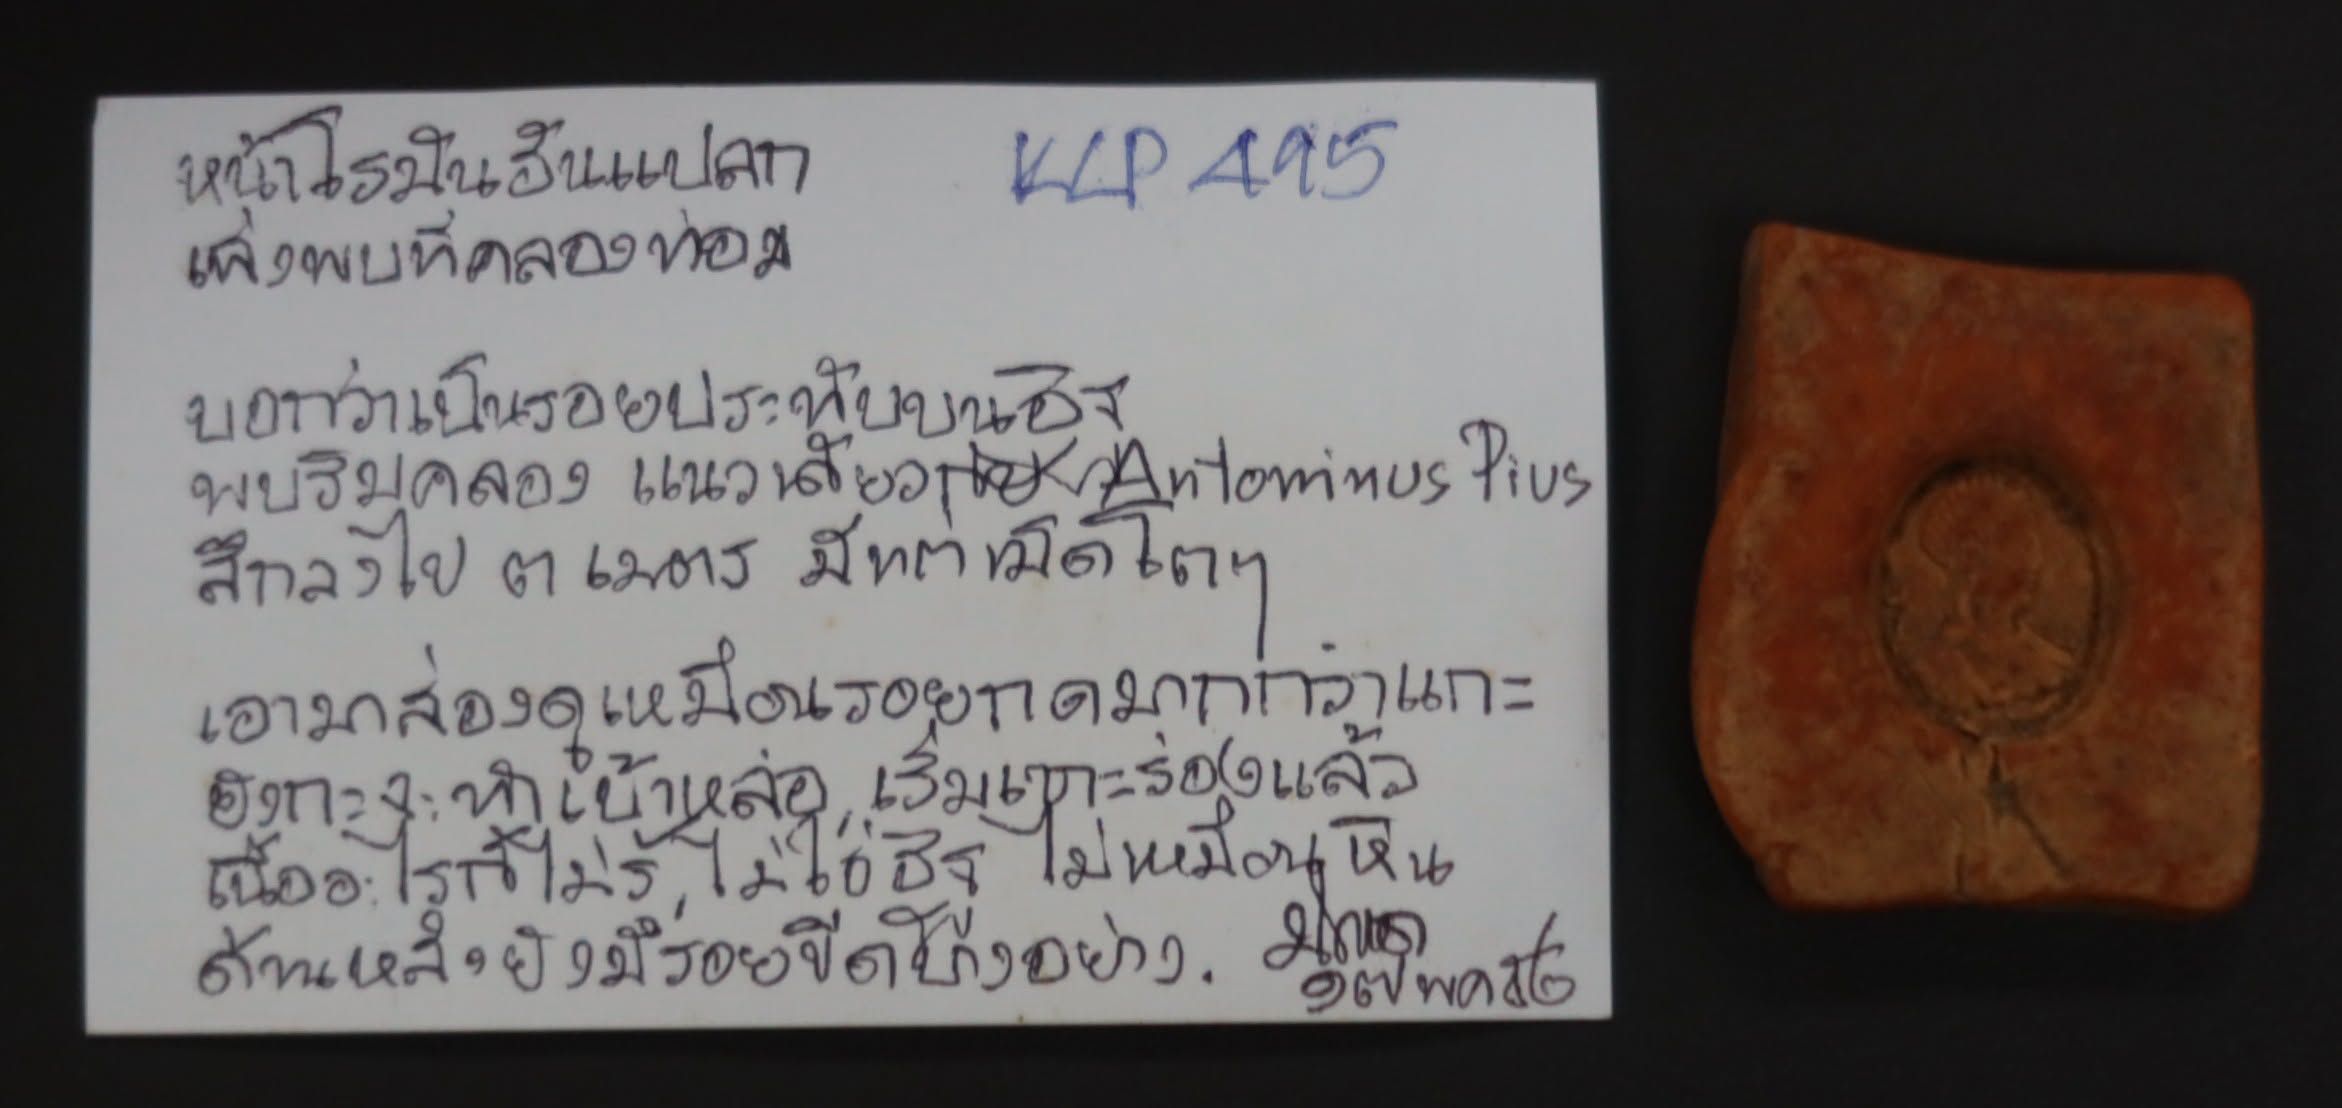 หน้าโรมันอันแปลก KLP 495
เพิ่งพบที่คลองท่อม
บอกว่าเป็นรอยประทับบนอิฐ
พบริมคลอง แนวเดียว Antoninus Pius
ลึกลงไป ๓ เมตร มีแต่เม็ดโตๆ
เอามาส่องดูเหมือนรอยกดมากกว่าแกะ
คงกะจะทำเบ้าหล่อ, เริ่มเจาะร่องแล้ว
เนื้ออะไรก็ไม่รู้, ไม่ใช่อิฐ ไม่เหมือนหิน
ด้านหลังยังมีรอยขีดบางอย่าง.
๑๗ พค